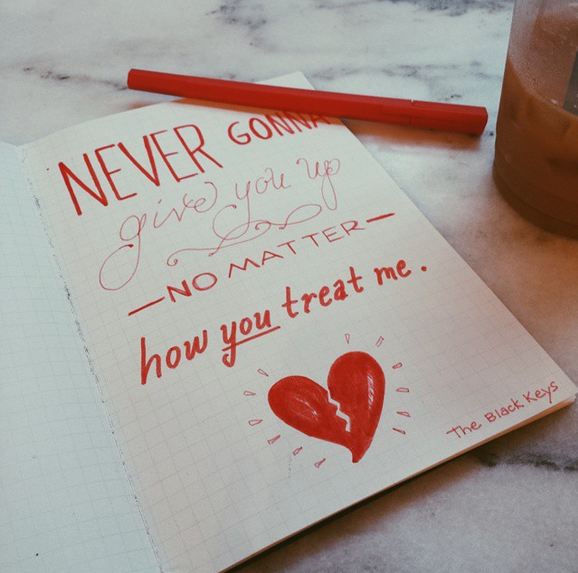 NEVER GONNA
give you up
NO MATTER
how you treat me.
The Black Keys